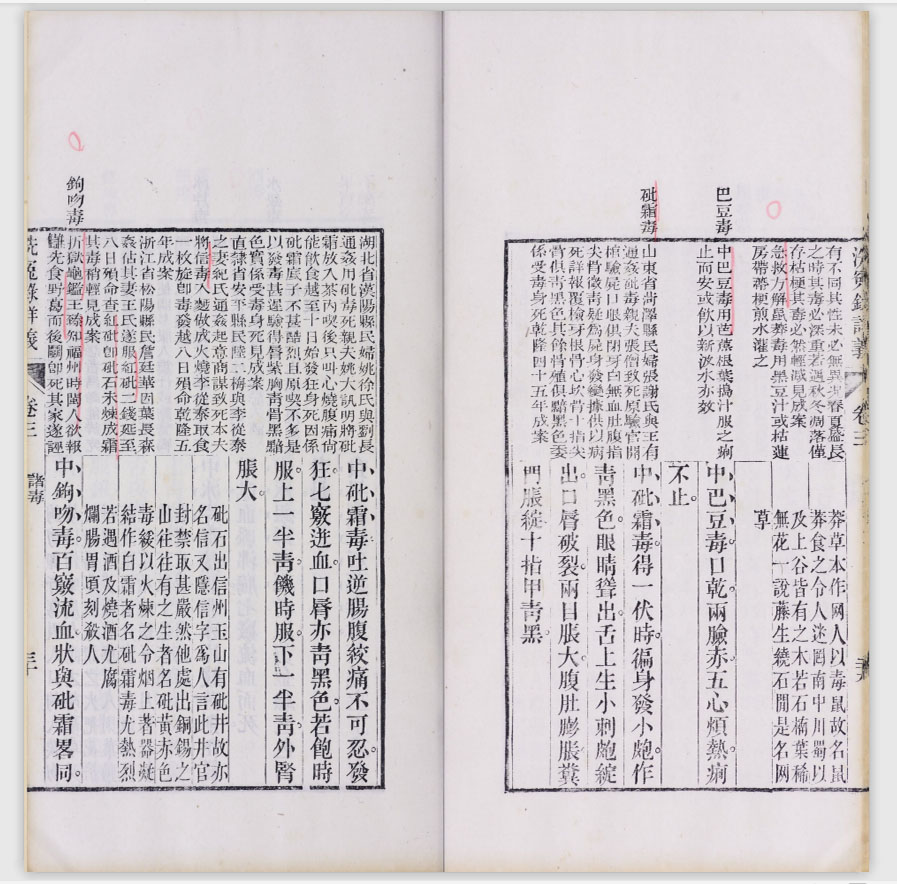 巴豆毒
砒霜毒
有不同其性未必無異夫春夏盛長
之時其毒必深重若遇秋冬凋落僅
存枯梗其毒必當輕減見成案
急救方解鼠莽毒用黑豆汁或枯蓮
房帶蔕梗煎水灌之
中巴豆毒用芭蕉根葉搗汁服之痢
止而安或飲以新汲水亦效
山東省菏澤縣民婦張謝氏與王有
通姦砒毒親夫張僧致死原驗官開
棺驗屍口眼俱閉牙白無血肚腹指
尖骨微青疑為屍身發變據供以病
死詳報覆檢牙根骨心坎骨十指尖
骨俱青黑色其餘骨殖俱黯黑色委
係受毒身死乾隆四十五年成案
莽草本作网人以毒鼠故名鼠
莽食之令人迷罔南中川蜀以
及上谷皆有之木若石楠葉稀
無花一說藤生繞石閒是名网
草
中巴豆毒口乾兩臉赤五心煩熱痢
不止。
中砒霜毒得一伏時。徧身發小皰作
靑黑色。眼睛聳出。舌上生小刺皰綻
出。口脣破裂。兩耳脹大。腹肚膨脹。糞
門脹綻。十指甲靑黑。
鉤吻毒
湖北省漢陽縣民婦姚徐氏與劉長
通姦用砒毒死親夫姚大訊明將砒
霜放入茶內喫後只叫心燒腹痛尙
能飲食越至十日始發狂身死因係
砒霜底子不甚醲烈且原喫不多是
以發毒甚遲驗得脣紫胸靑骨黑黯
色實係受毒身死見成案
直隸省安平縣民陸二梅與李從泰
之妻紀氏通姦起意商謀致死本夫
將信毒入麪做成火燒李從泰取食
一枚旋卽毒發越八日殞命乾隆五
年成案
浙江省松陽縣民詹廷華因葉長森
姦佔其妻王氏遂服紅砒二錢延至
八日殞命查紅砒卽砒石未煉成霜
其毒稍輕見成案
折獄龜鑑王臻知福州時閩人欲報
讎先食野葛而後鬭卽死其家遂誣
中砒霜毒吐逆腸腹絞痛不可忍。發
狂。七竅迸血。口脣亦靑黑色。若飽時
服。上一半靑。饑時服。下一半靑。外腎
脹大。
砒石出信州玉山有砒井故亦
名信又隱信字爲人言此井官
封禁取甚嚴然他處出銅錫之
山往往有之生者名砒黃赤色
毒緩以火煉之令烟上著器凝
結作白霜者名砒霜毒尤熱烈
若遇酒及燒酒尤腐
爛腸胃頃刻殺人
中鉤吻毒。百竅流血。狀與砒霜畧同。
卷三
諸毒